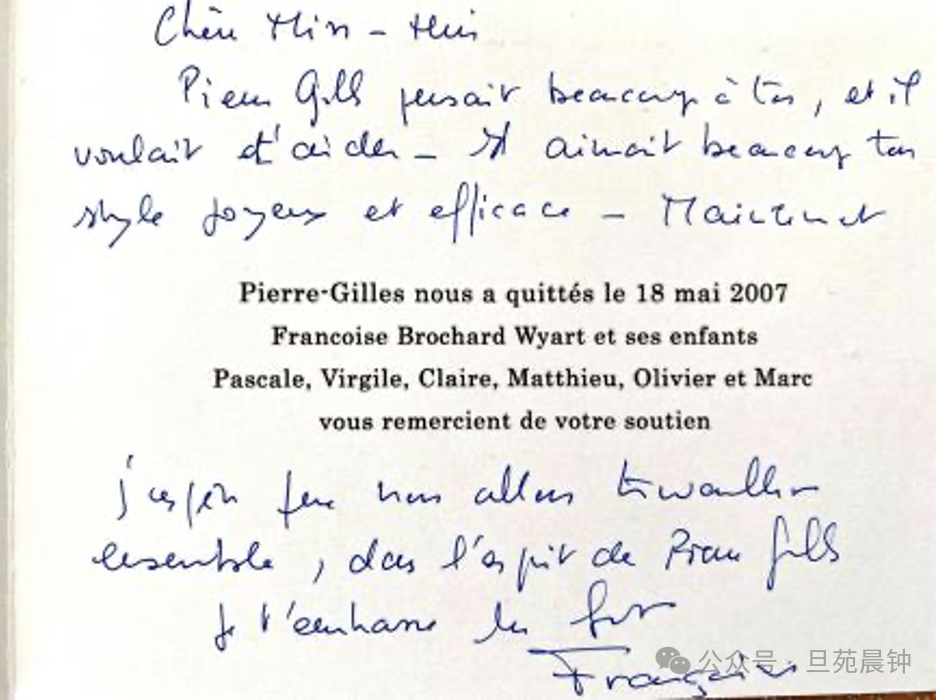 Chère Min-Hui
Pierre Gilles pensait beaucoup à toi, et il
voulait t'aider – Il aimait beaucoup ton
style joyeux et efficace – Maintenant
Pierre-Gilles nous a quittés le 18 mai 2007
Francoise Brochard Wyart et ses enfants
Pascale, Virgile, Claire, Matthieu, Olivier et Marc
vous remercient de votre soutien
j'espère que nous allons travailler
ensemble, dans l'esprit de Pierre Gilles
je t'embrasse très fort
Françoise
公众号·旦苑晨钟